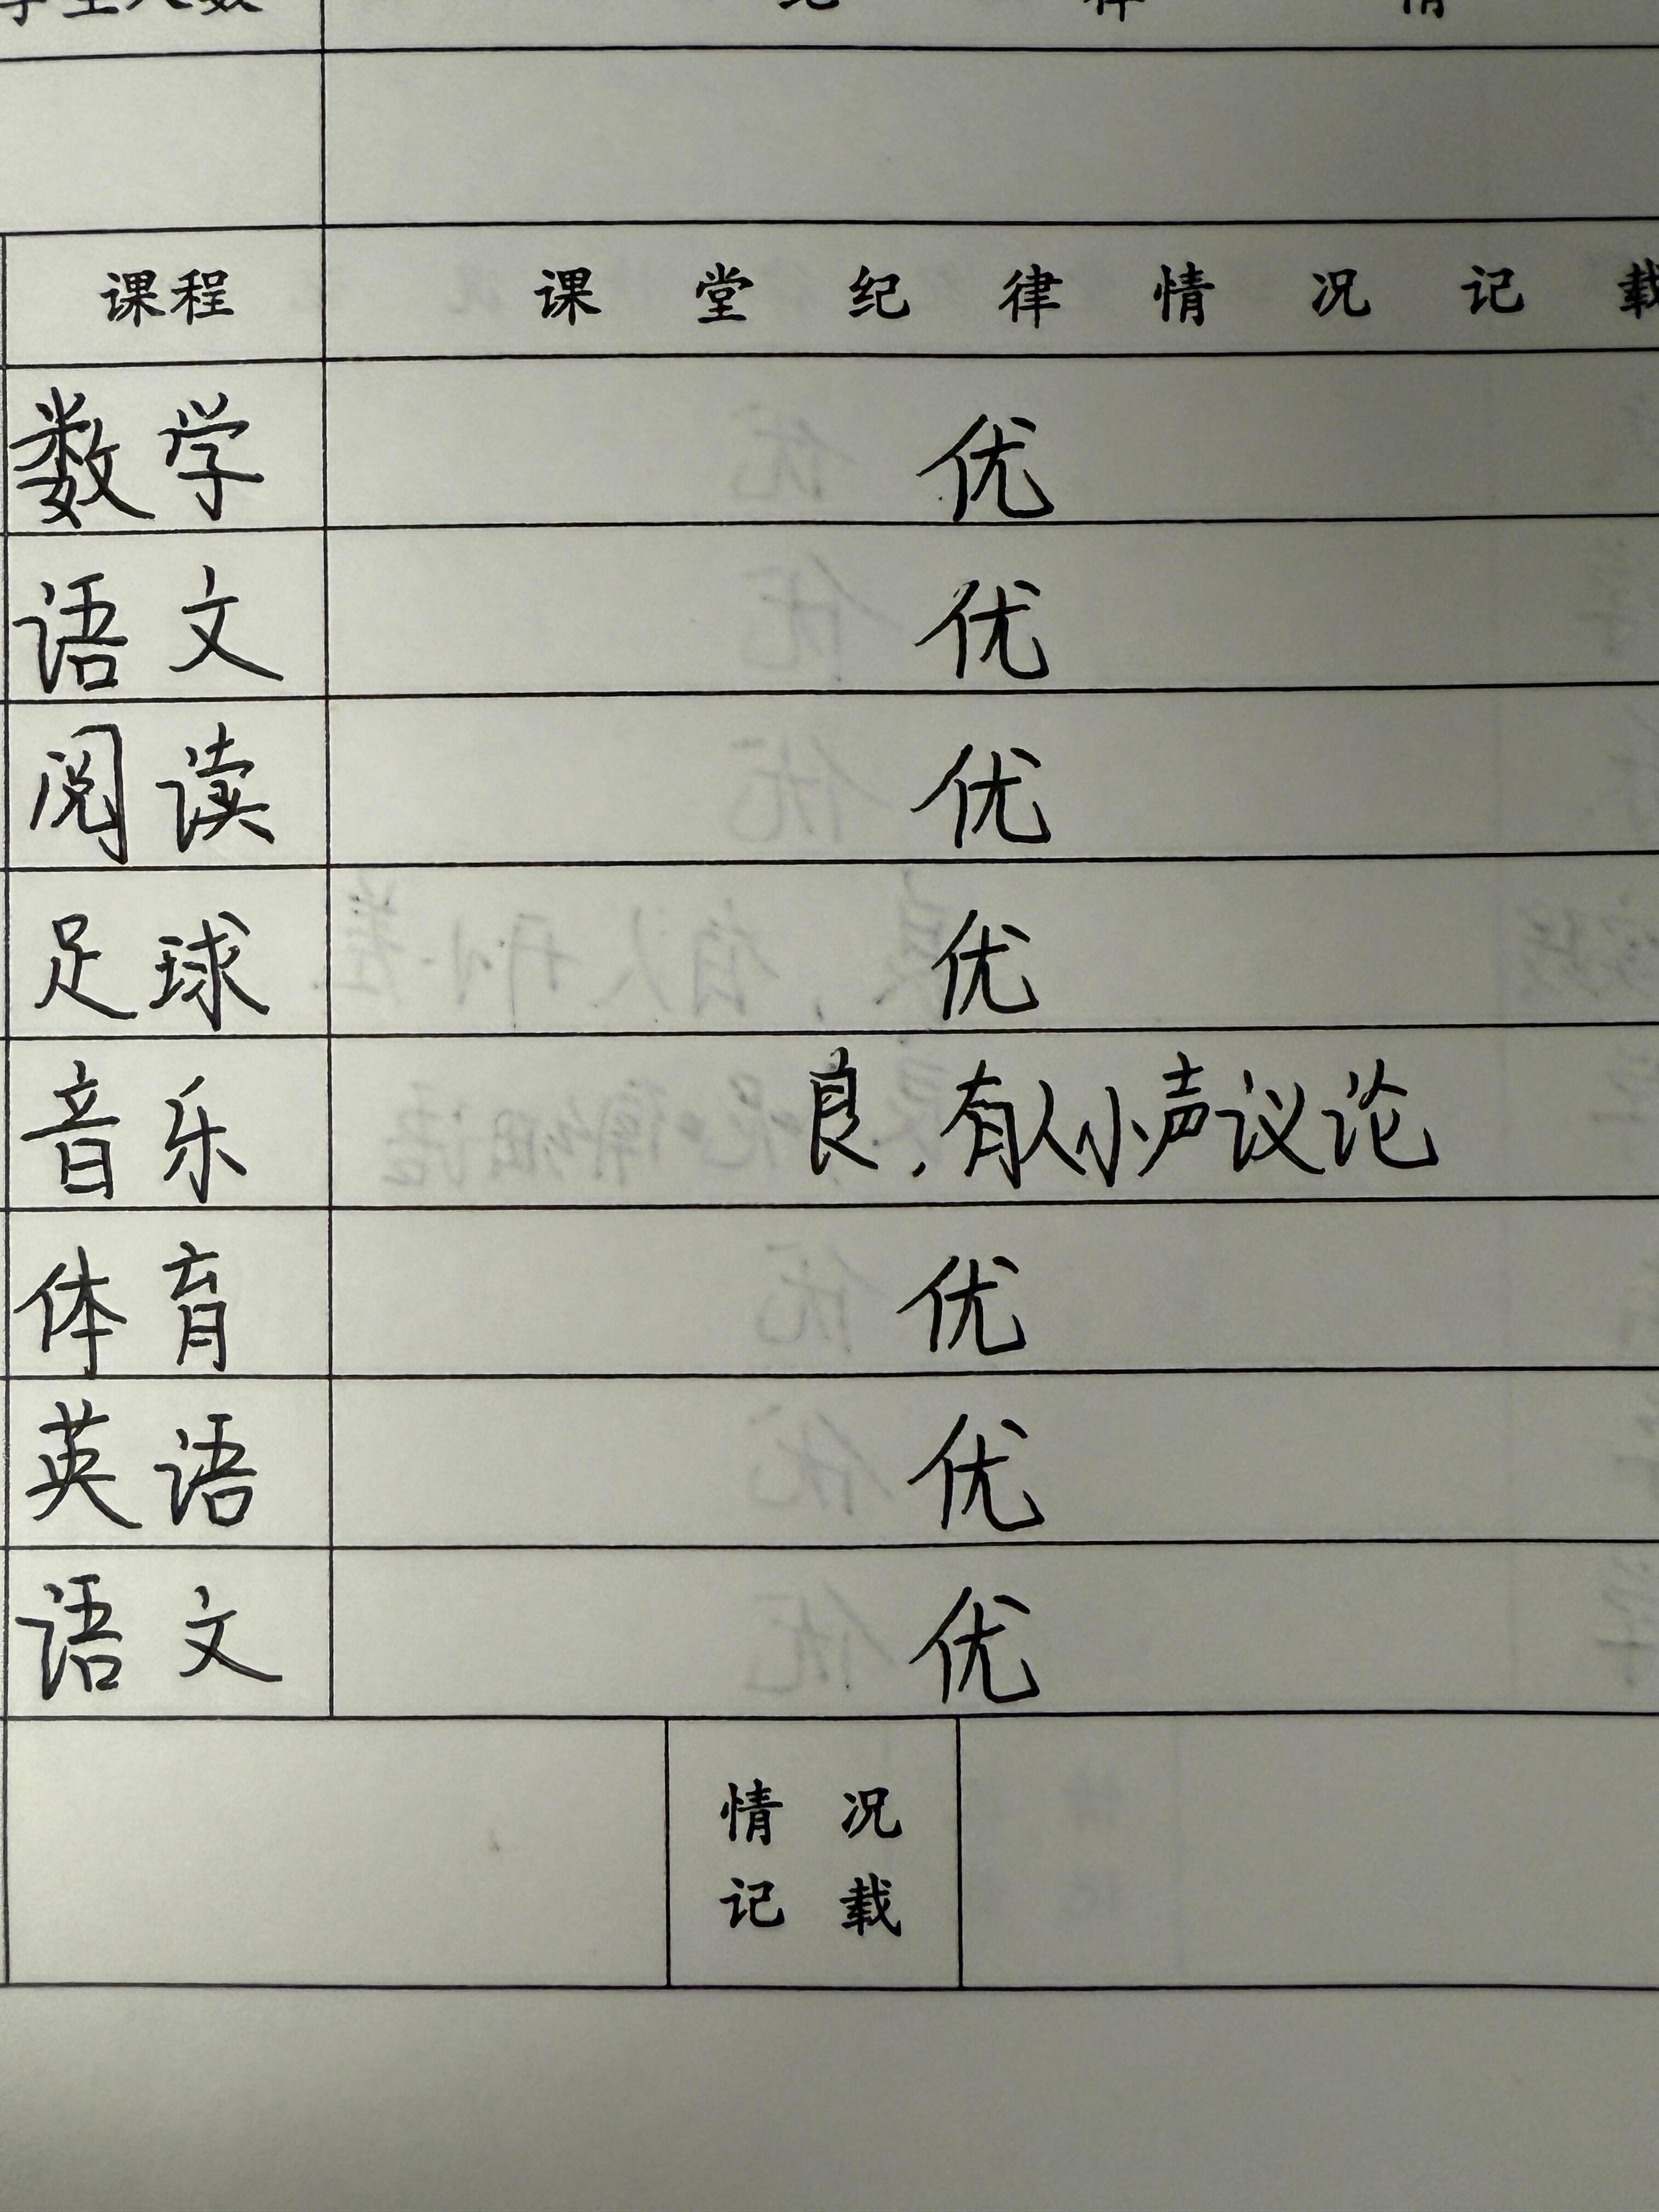 学生人数 纪 律 情
课程 课 堂 纪 律 情 况 记 载
数学 优
语文 优
阅读 优
足球 优
音乐 良，有人小声议论
体育 优
英语 优
语文 优
情 况
记 载